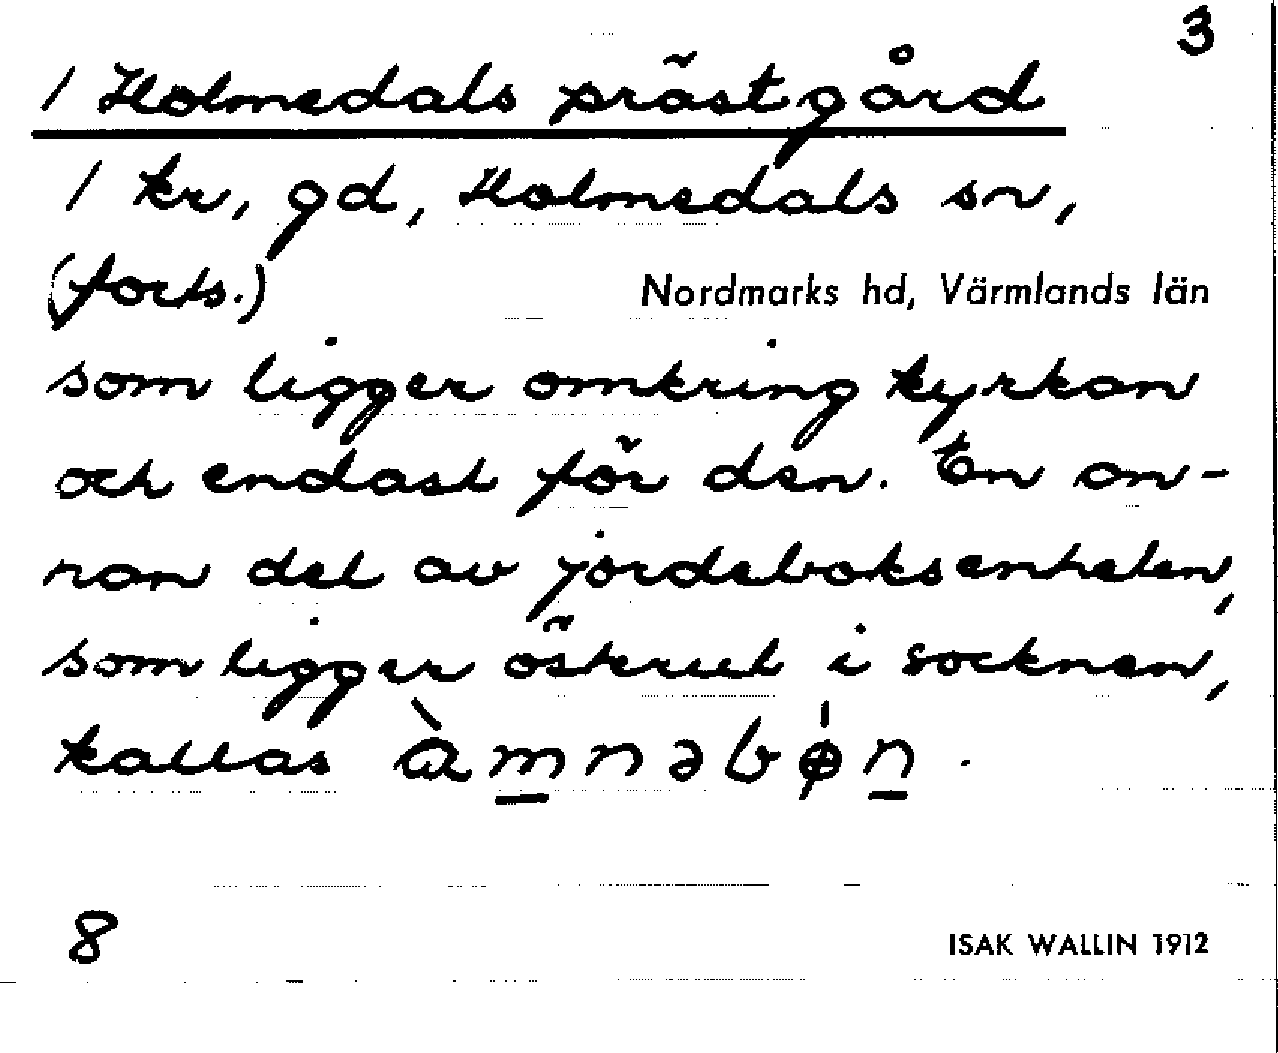 3
/ Holmedals prästgård
/ kr, gd, Holmedals sn,
(forts.) Nordmarks hd, Värmlands län
som ligger omkring kyrkan
och endast för den. En an-
nan del av jordeboksenheten,
som ligger österut i socknen,
kallas àmnəbøn.
8 ISAK WALLIN 1912